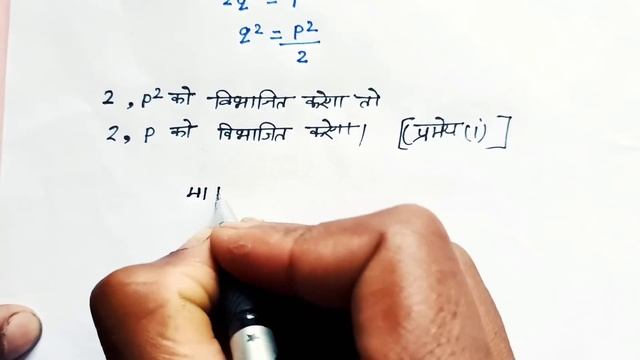 2q² = p²
q² = p²/2
2, p² को विभाजित करेगा तो
2, p को विभाजित करेगा। [(प्रमेय (i)]
मा